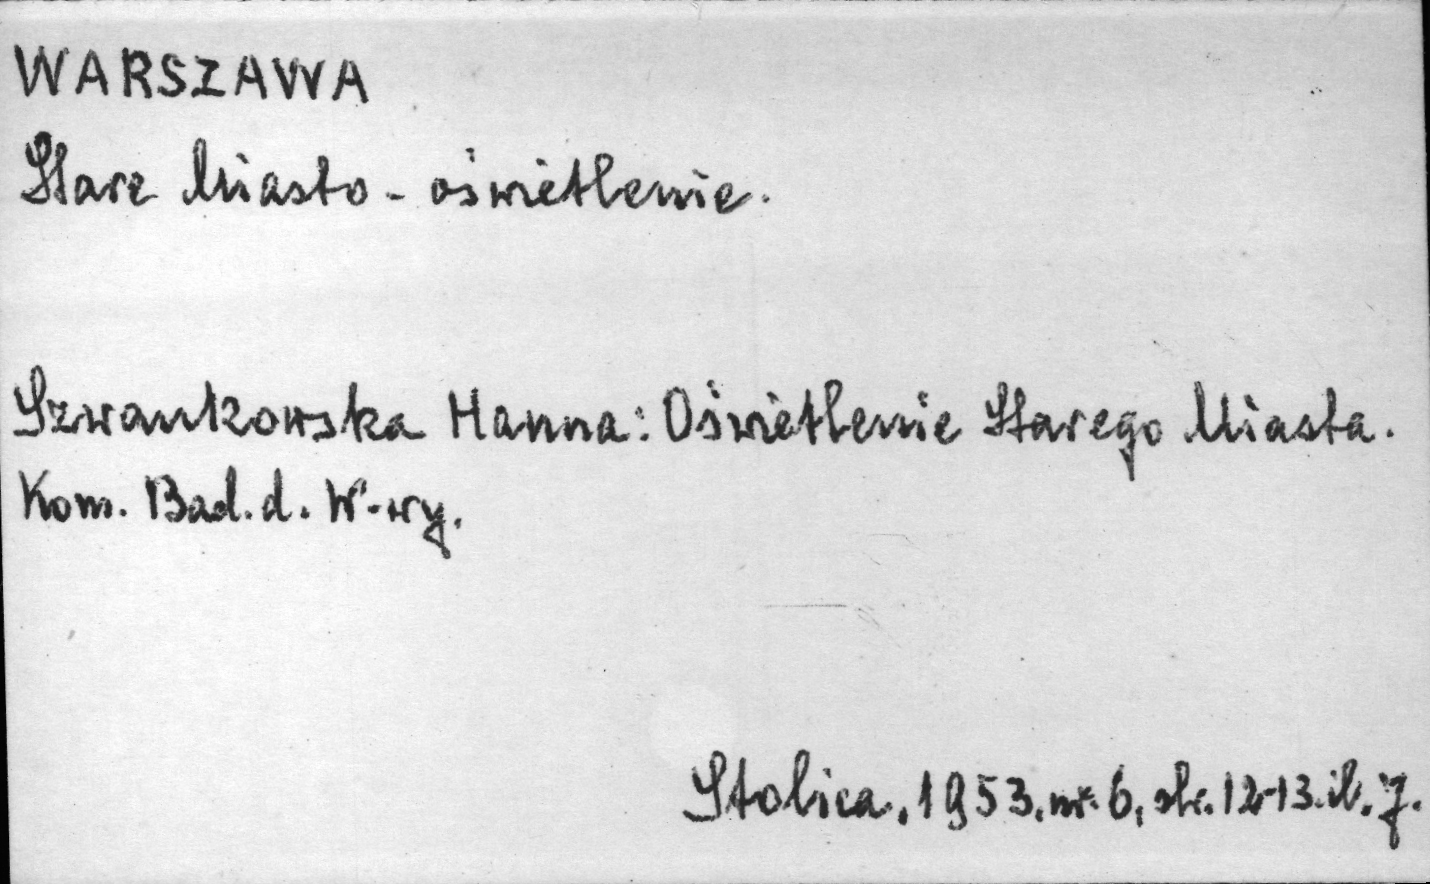 WARSZAWA
Stare Miasto - oświetlenie.
Szwankowska Hanna: Oświetlenie Starego Miasta.
Kom. Bad. d. W-wy.
Stolica, 1953. nr. 6, str. 12-13. il. 7.